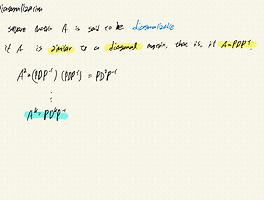 Diagonalization
square matrix A is said to be diagonalizable
if A is similar to a diagonal matrix, that is, if A=PDP⁻¹
A²=(PDP⁻¹)(PDP⁻¹) = PD²P⁻¹
⋮
Aᵏ=PDᵏP⁻¹